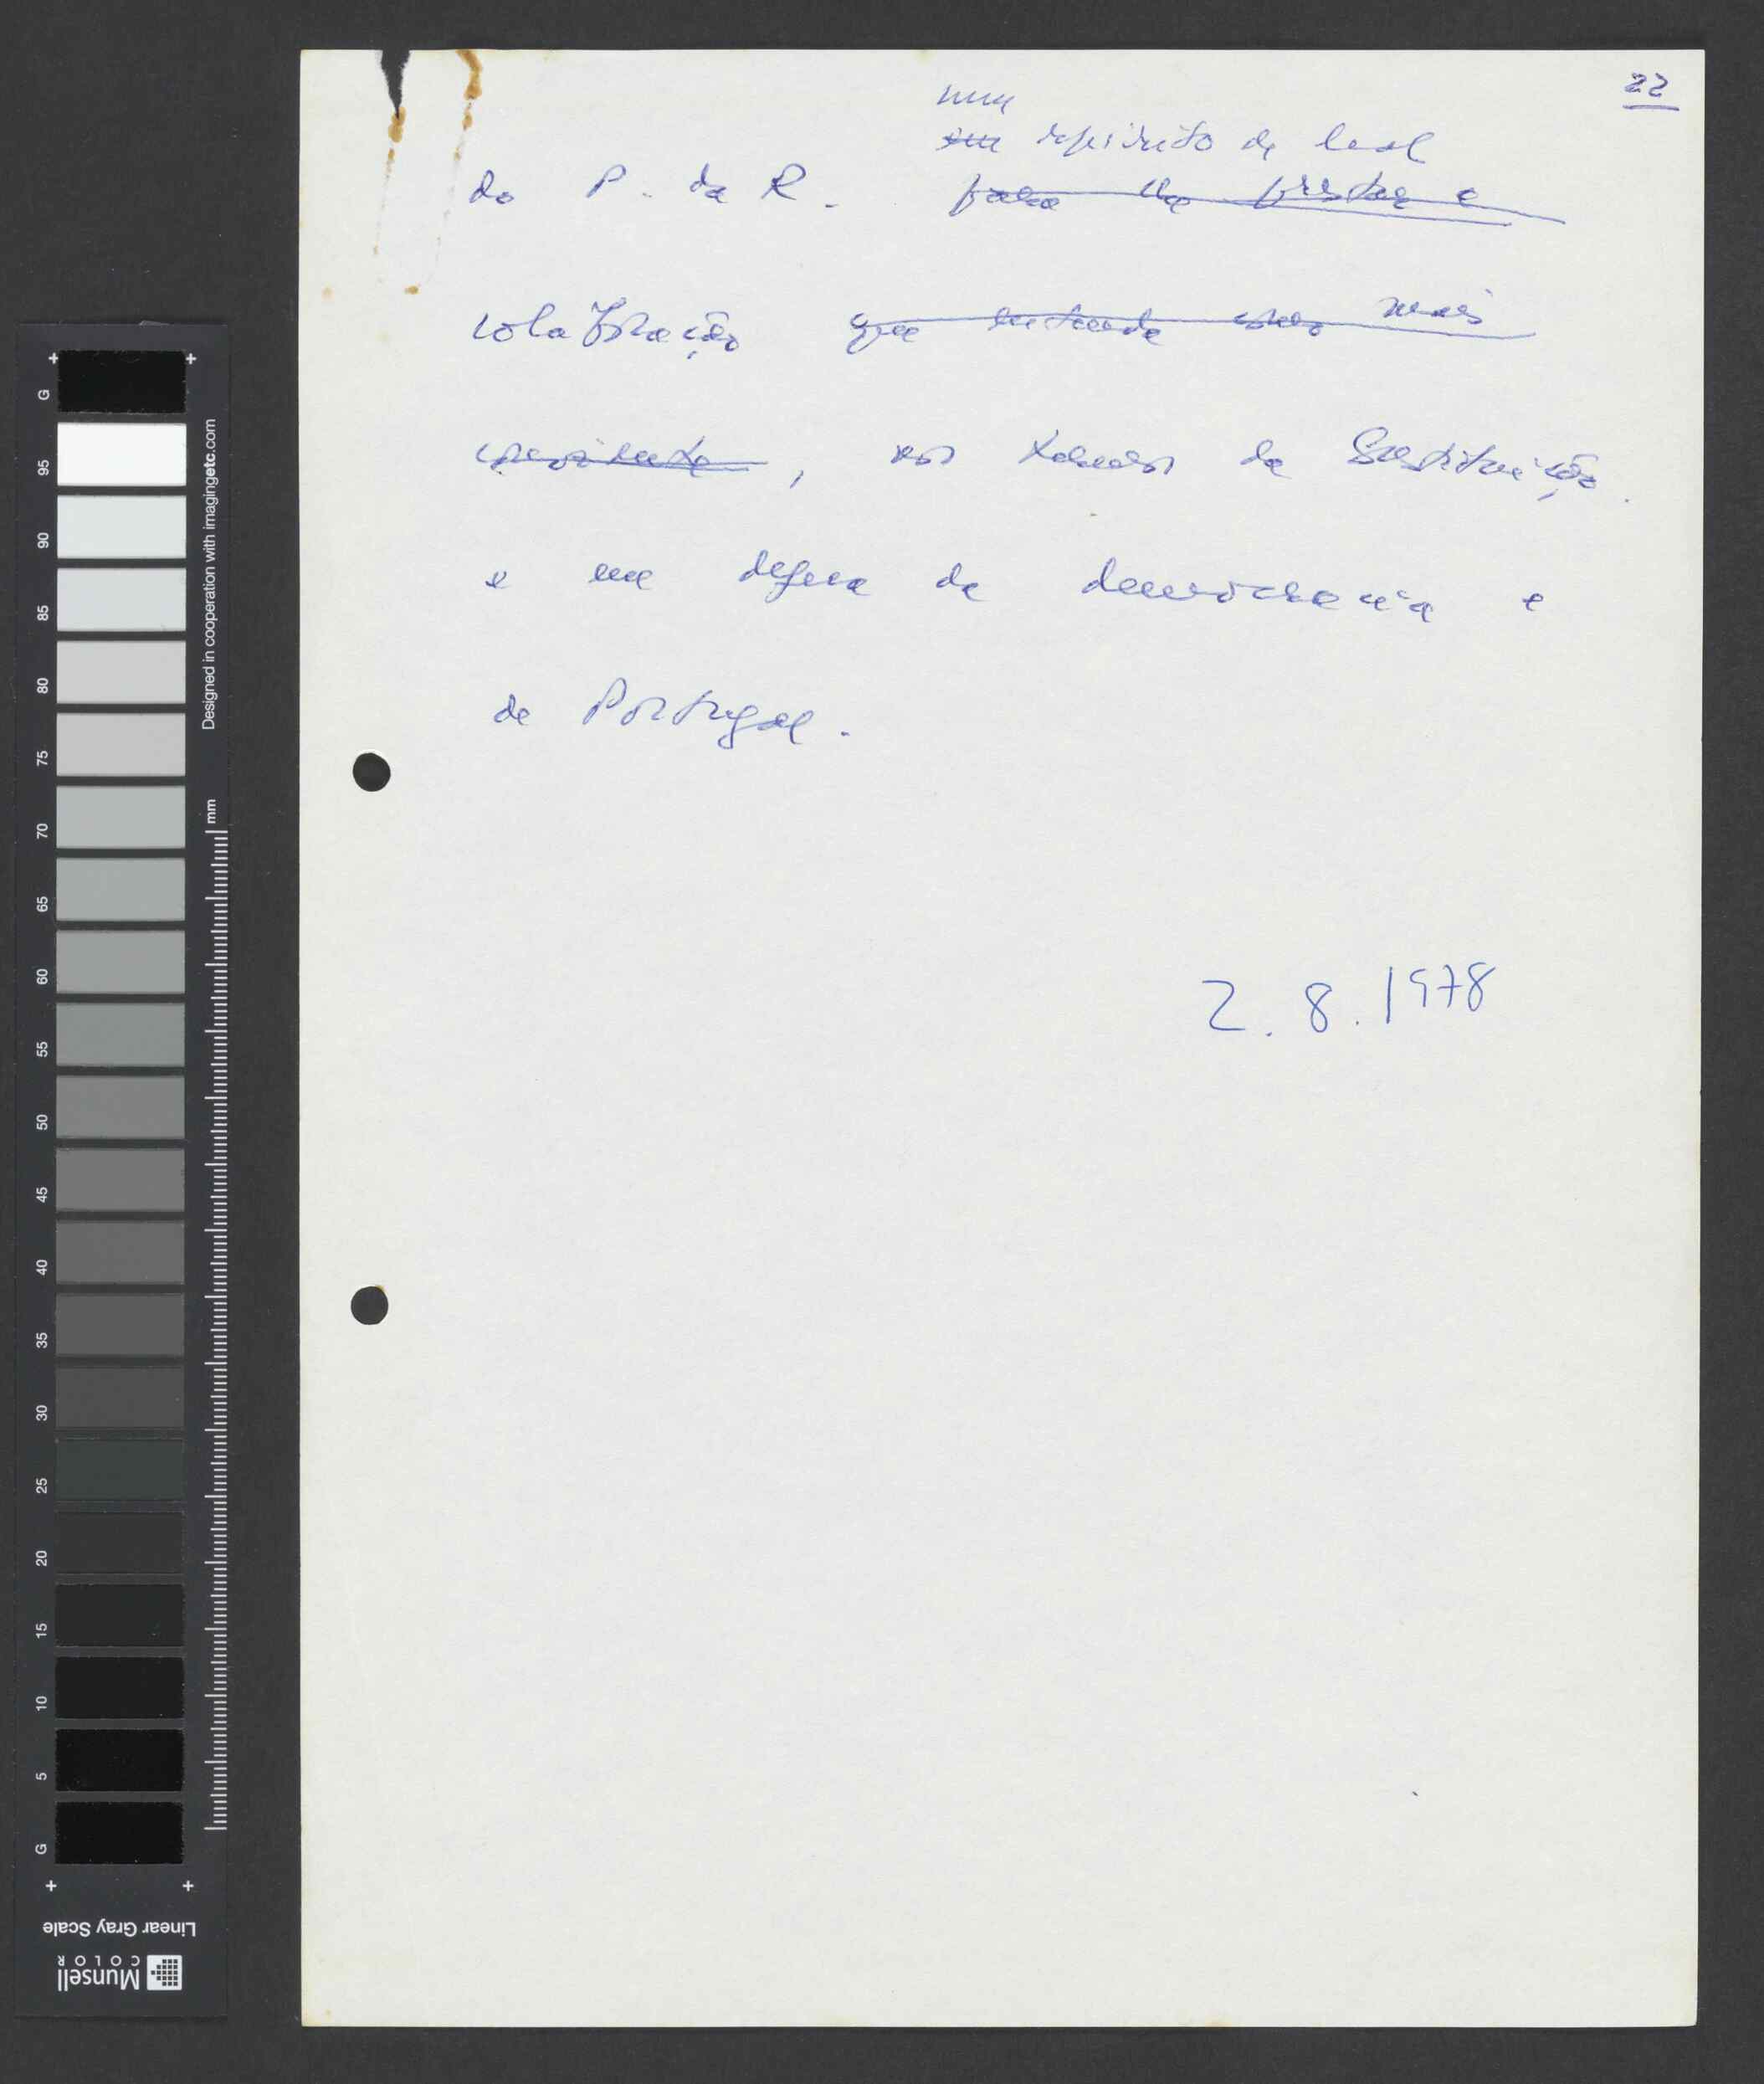 22
num
em espírito de leal
do P. da R. para lhe prestar a
colaboração que entenda por mais
conveniente, nos termos da Constituição
e na defesa da democracia e
de Portugal.
2.8.1978
G
95
90
85
80
75
70
65
60
55
50
45
40
35
30
25
20
15
10
5
G
Designed in cooperation with imagingetc.com
mm
Linear Gray Scale
Munsell
COLOR